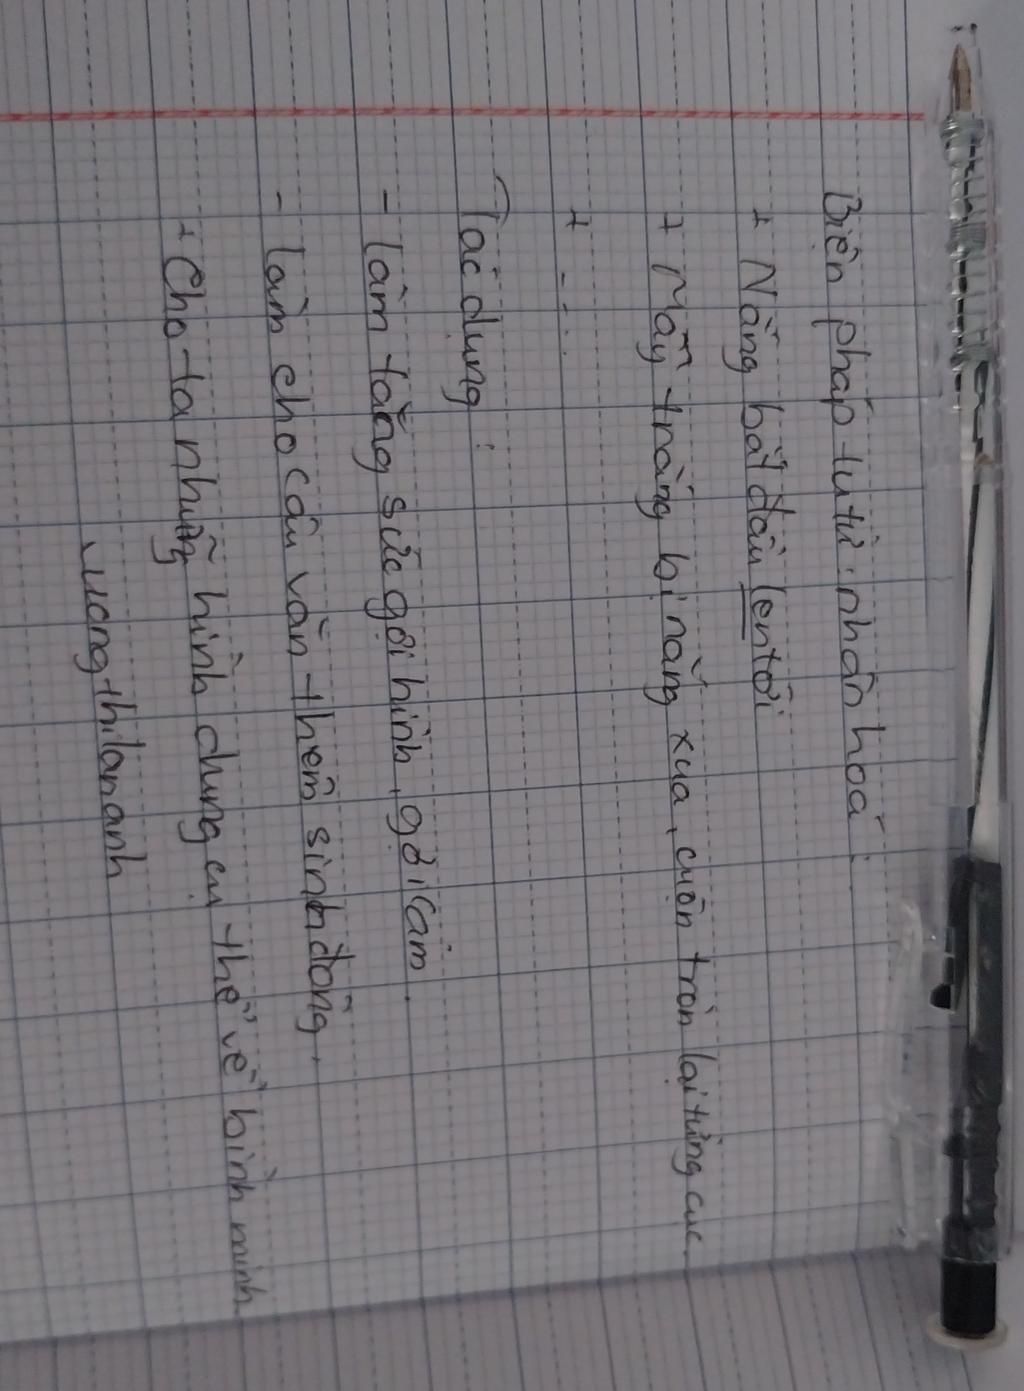 Biện pháp tu từ: nhân hoá.
+ Nắng bắt đầu lên tới
+ Mây trắng bị nắng xua, cuộn tròn lại từng cục.
+ ...
Tác dụng:
- làm tăng sức gợi hình, gợi cảm.
- làm cho câu văn thêm sinh động.
+ Cho ta những hình dung cụ thể về bình minh
vuongthilananh